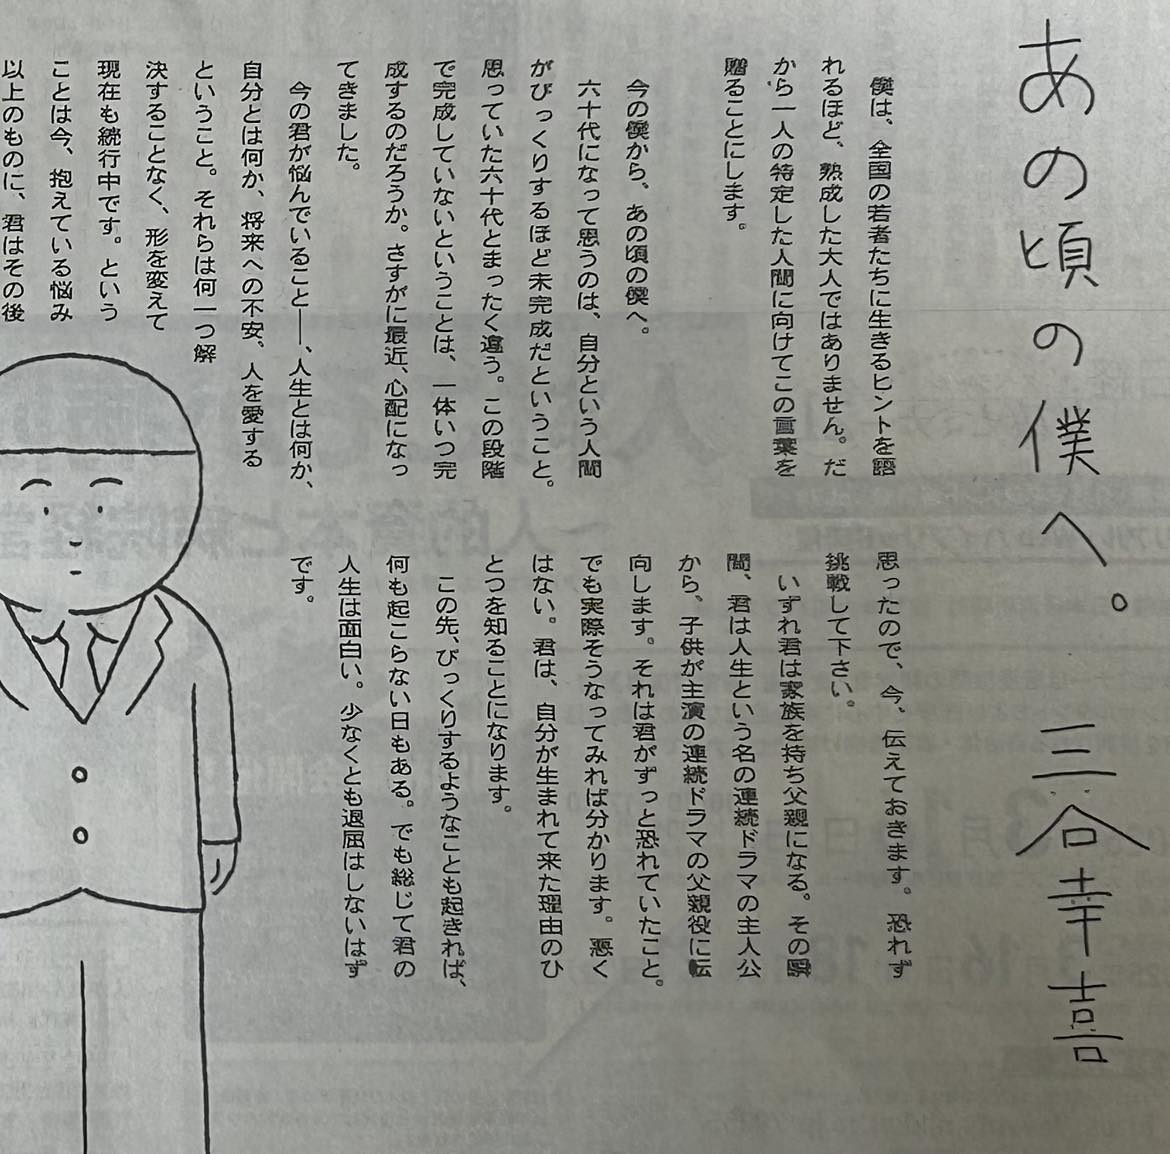 あの頃の僕へ。 三谷幸喜
僕は、全国の若者たちに生きるヒントを語
れるほど、熟成した大人ではありません。だ
から一人の特定した人間に向けてこの言葉を
贈ることにします。
今の僕から、あの頃の僕へ。
六十代になって思うのは、自分という人間
がびっくりするほど未完成だということ。
思っていた六十代とまったく違う。この段階
で完成していないということは、一体いつ完
成するのだろうか。さすがに最近、心配になっ
てきました。
今の君が悩んでいること——、人生とは何か、
自分とは何か、将来への不安、人を愛する
ということ。それらは何一つ解
決することなく、形を変えて
現在も続行中です。という
ことは今、抱えている悩み
以上のものに、君はその後
思ったので、今、伝えておきます。恐れず
挑戦して下さい。
いずれ君は家族を持ち父親になる。その瞬
間、君は人生という名の連続ドラマの主人公
から、子供が主演の連続ドラマの父親役に転
向します。それは君がずっと恐れていたこと。
でも実際そうなってみれば分かります。悪く
はない。君は、自分が生まれて来た理由のひ
とつを知ることになります。
この先、びっくりするようなことも起きれば、
何も起こらない日もある。でも総じて君の
人生は面白い。少なくとも退屈はしないはず
です。